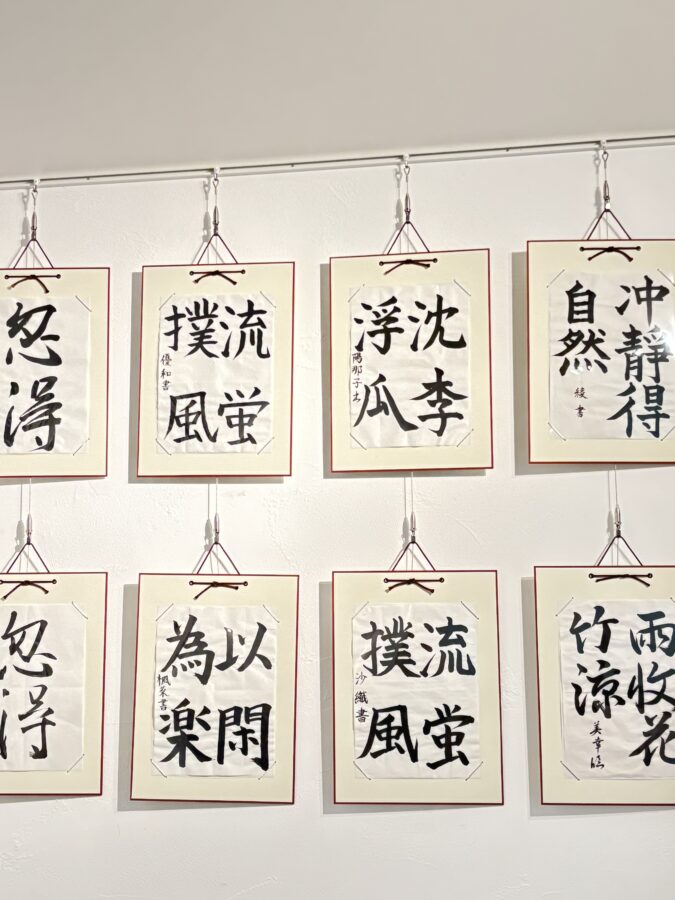 忽得
流蛍
撲風
優和書
沈李
浮瓜
陽那子書
冲靜得
自然
綾書
忽得
以閑
為楽
楓菜書
流蛍
撲風
沙織書
雨收花
竹涼
美幸臨